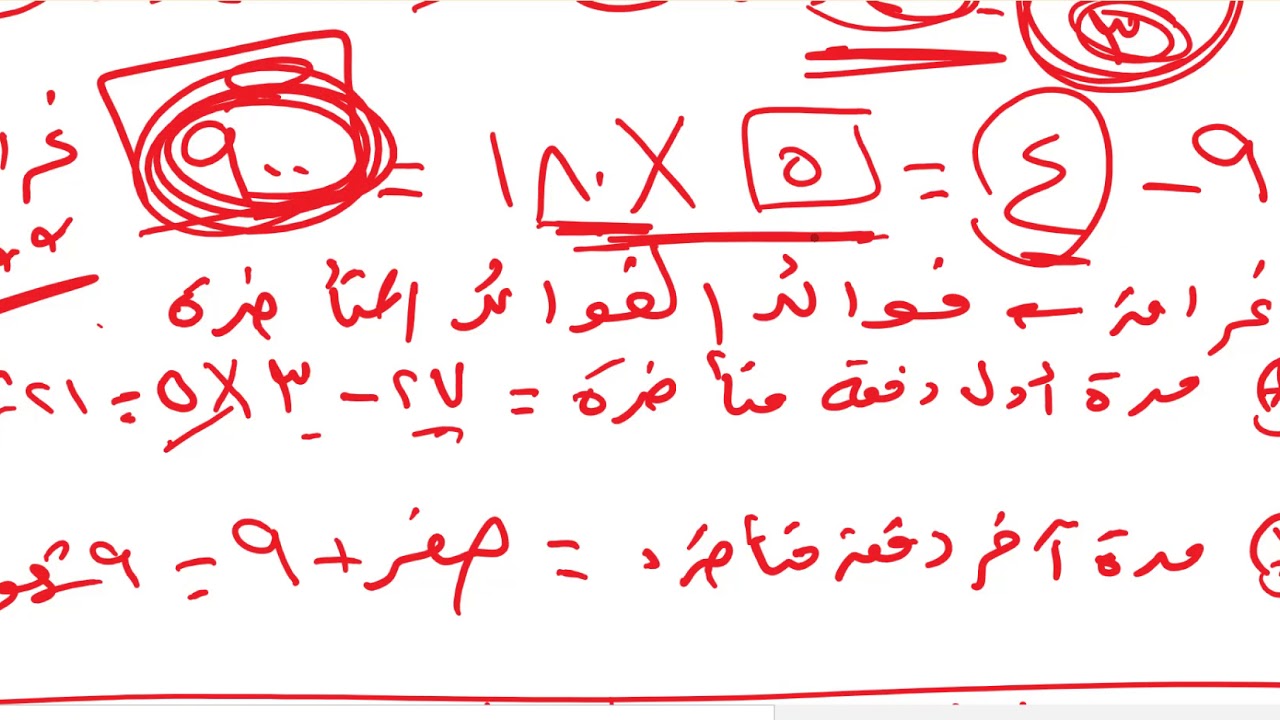 ٩ - ٤ = ٥ × ١٨٠ = ٩٠٠
غرامة ← فوائد الفوائد المتأخرة
مدة أول دفعة متأخرة = ٢٧ - ٣ × ٥ =
مدة آخر دفعة متأخرة = صفر + ٩ = ٩